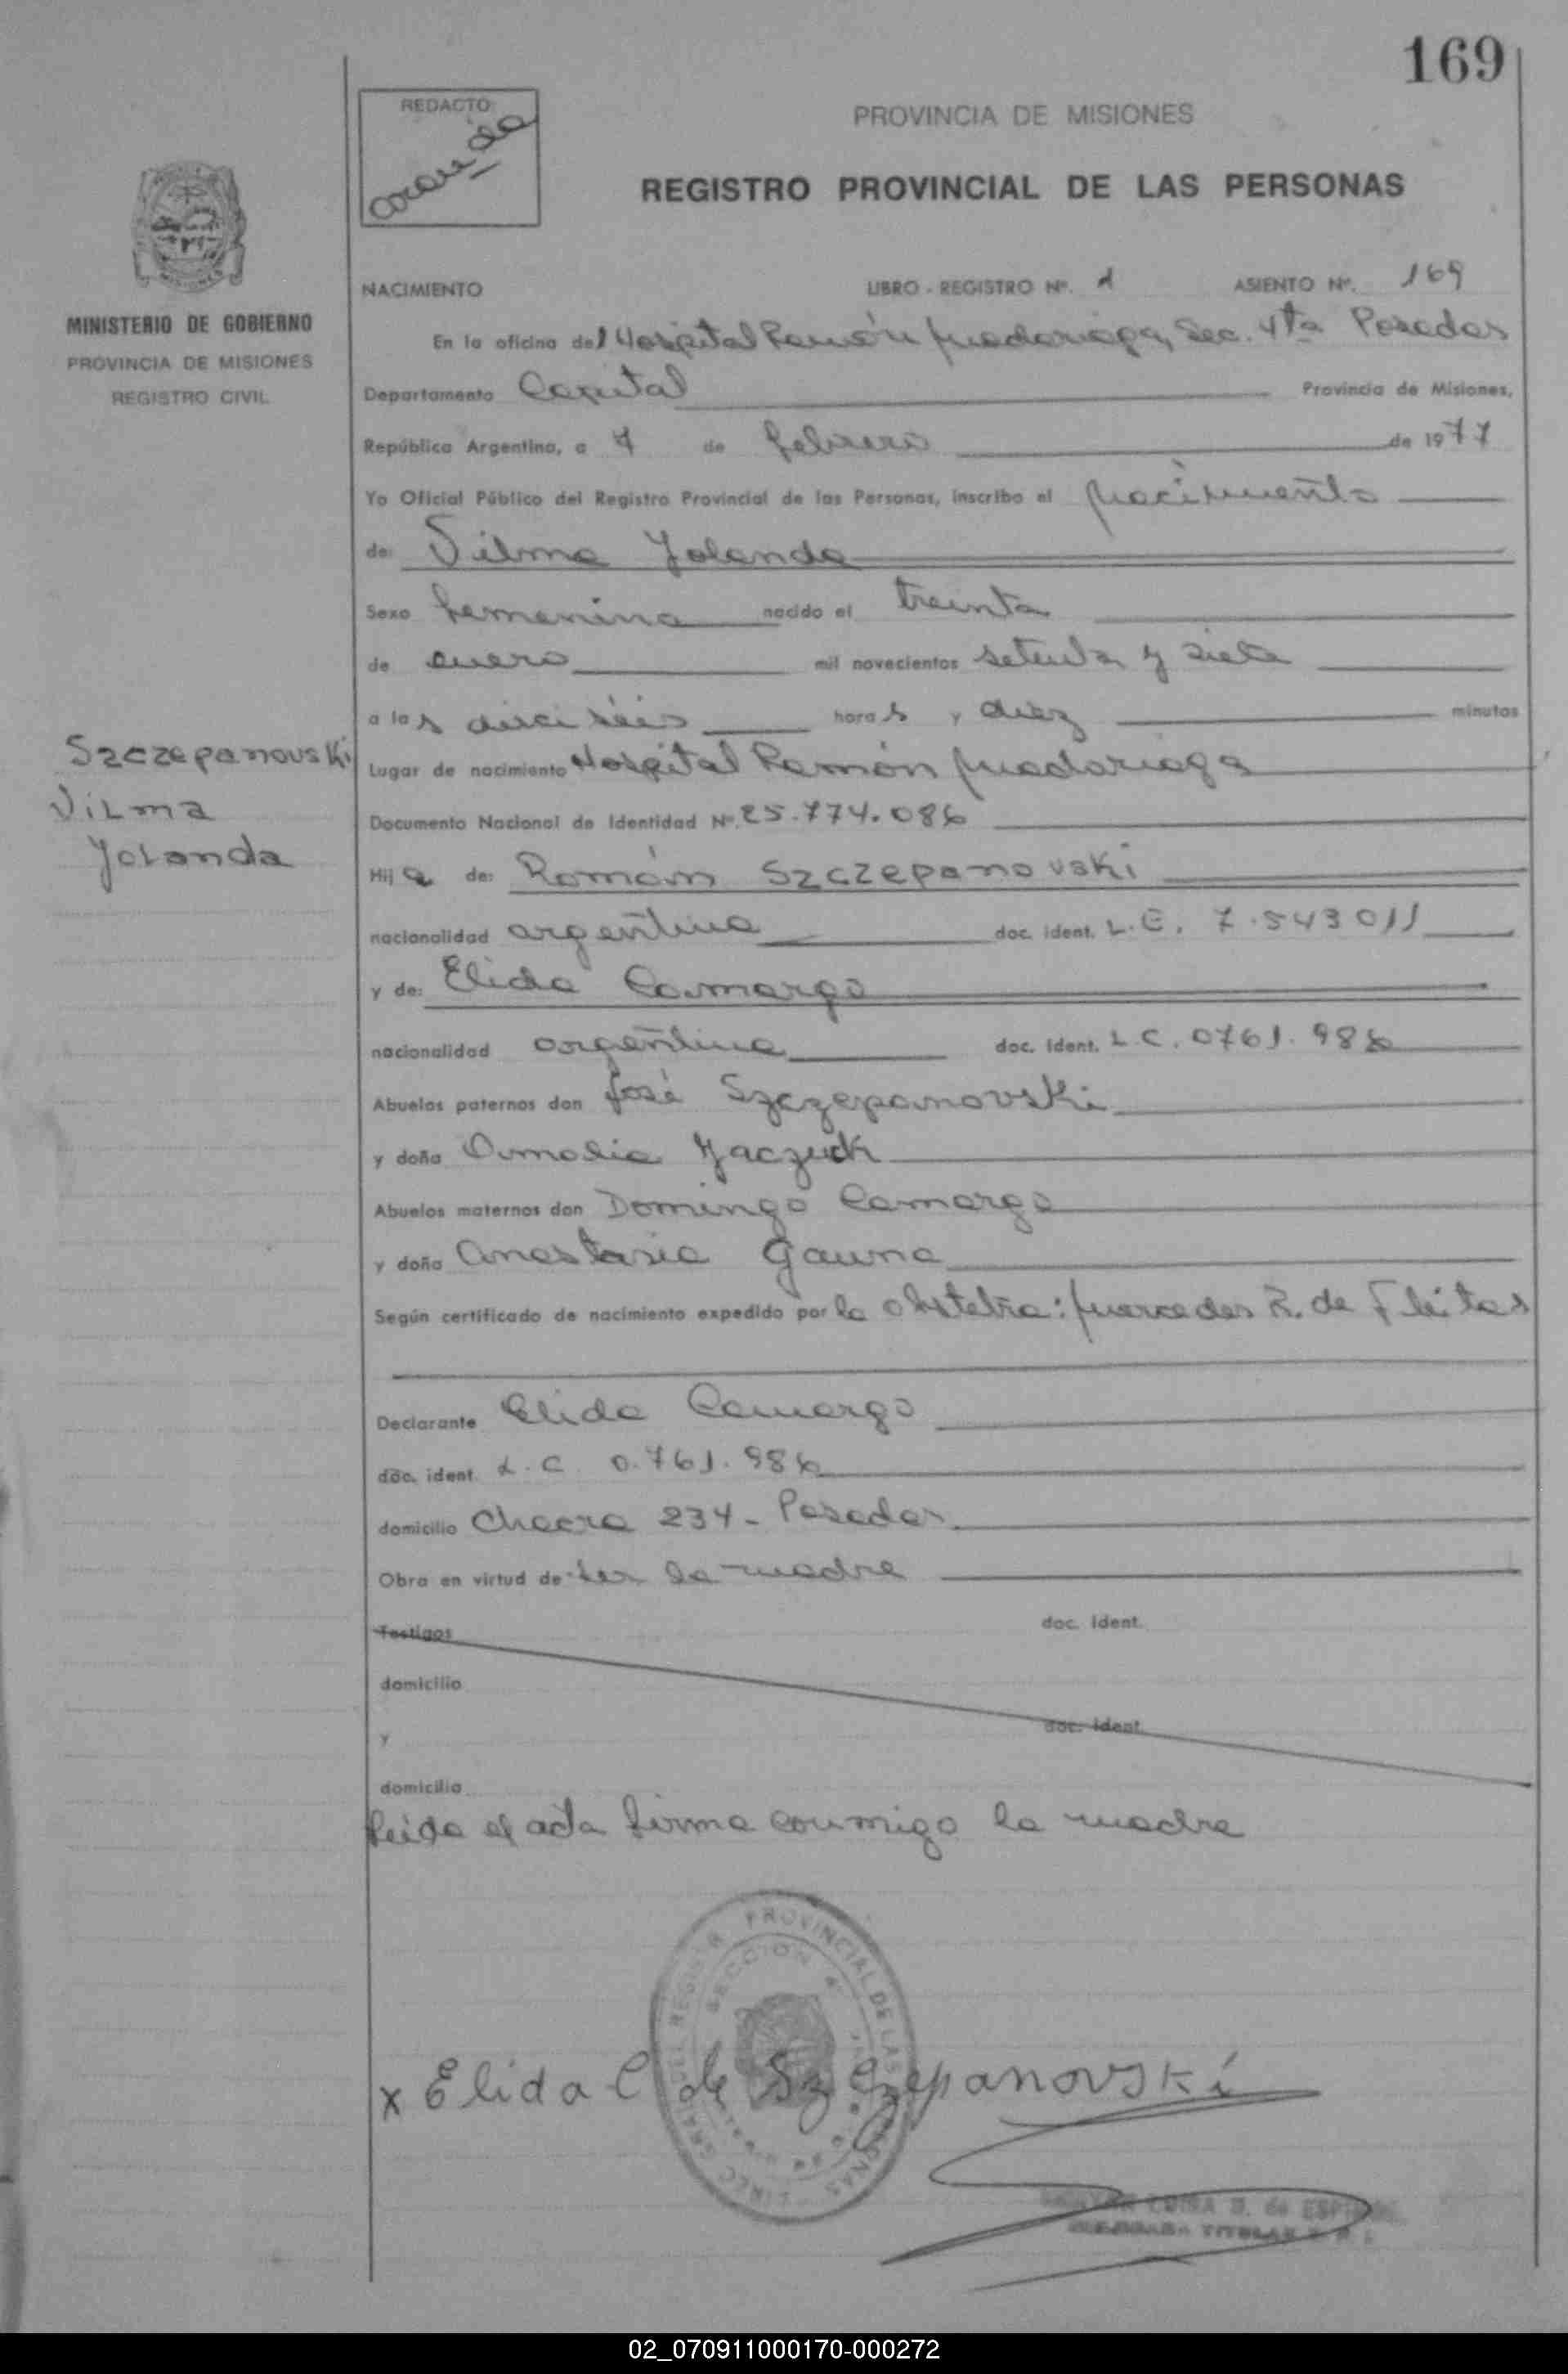 169
REDACTO:
PROVINCIA DE MISIONES
REGISTRO PROVINCIAL DE LAS PERSONAS
MISIONES
MINISTERIO DE GOBIERNO
PROVINCIA DE MISIONES
REGISTRO CIVIL
NACIMIENTO LIBRO - REGISTRO Nº. 1 ASIENTO Nº. 169
En la oficina del Hospital Ramón Madariaga, Sec. 4ta Posadas
Departamento Capital Provincia de Misiones,
República Argentina, a 7 de febrero de 1977
Yo Oficial Público del Registro Provincial de las Personas, inscribo el nacimiento
de: Vilma Yolanda
Sexo femenino nacido el treinta
de enero mil novecientos setenta y siete
a las dieciséis horas y diez minutos
Szczepanovski
Vilma
Yolanda
Lugar de nacimiento Hospital Ramón Madariaga
Documento Nacional de Identidad Nº. 25.774.086
Hija de: Román Szczepanovski
nacionalidad argentina doc. ident. L.E. 7.543011
y de: Elida Camargo
nacionalidad argentina doc. ident. L.C. 0761.986
Abuelos paternos don José Szczepanovski
y doña Amalia Yaczuck
Abuelos maternos don Domingo Camargo
y doña Anastasia Gauna
Según certificado de nacimiento expedido por la obstetra: Mercedes R. de Fleitas
Declarante Elida Camargo
doc. ident. L.C. 0.761.986
domicilio Chacra 234 - Posadas
Obra en virtud de ser la madre
Testigos doc. ident.
domicilio
y doc. ident.
domicilio
Leida el acta firma conmigo la madre
PROVINCIAL DE LAS
SECCION 4
x Elida C de Szczepanovski
LUISA de
TITULAR
02_070911000170-000272